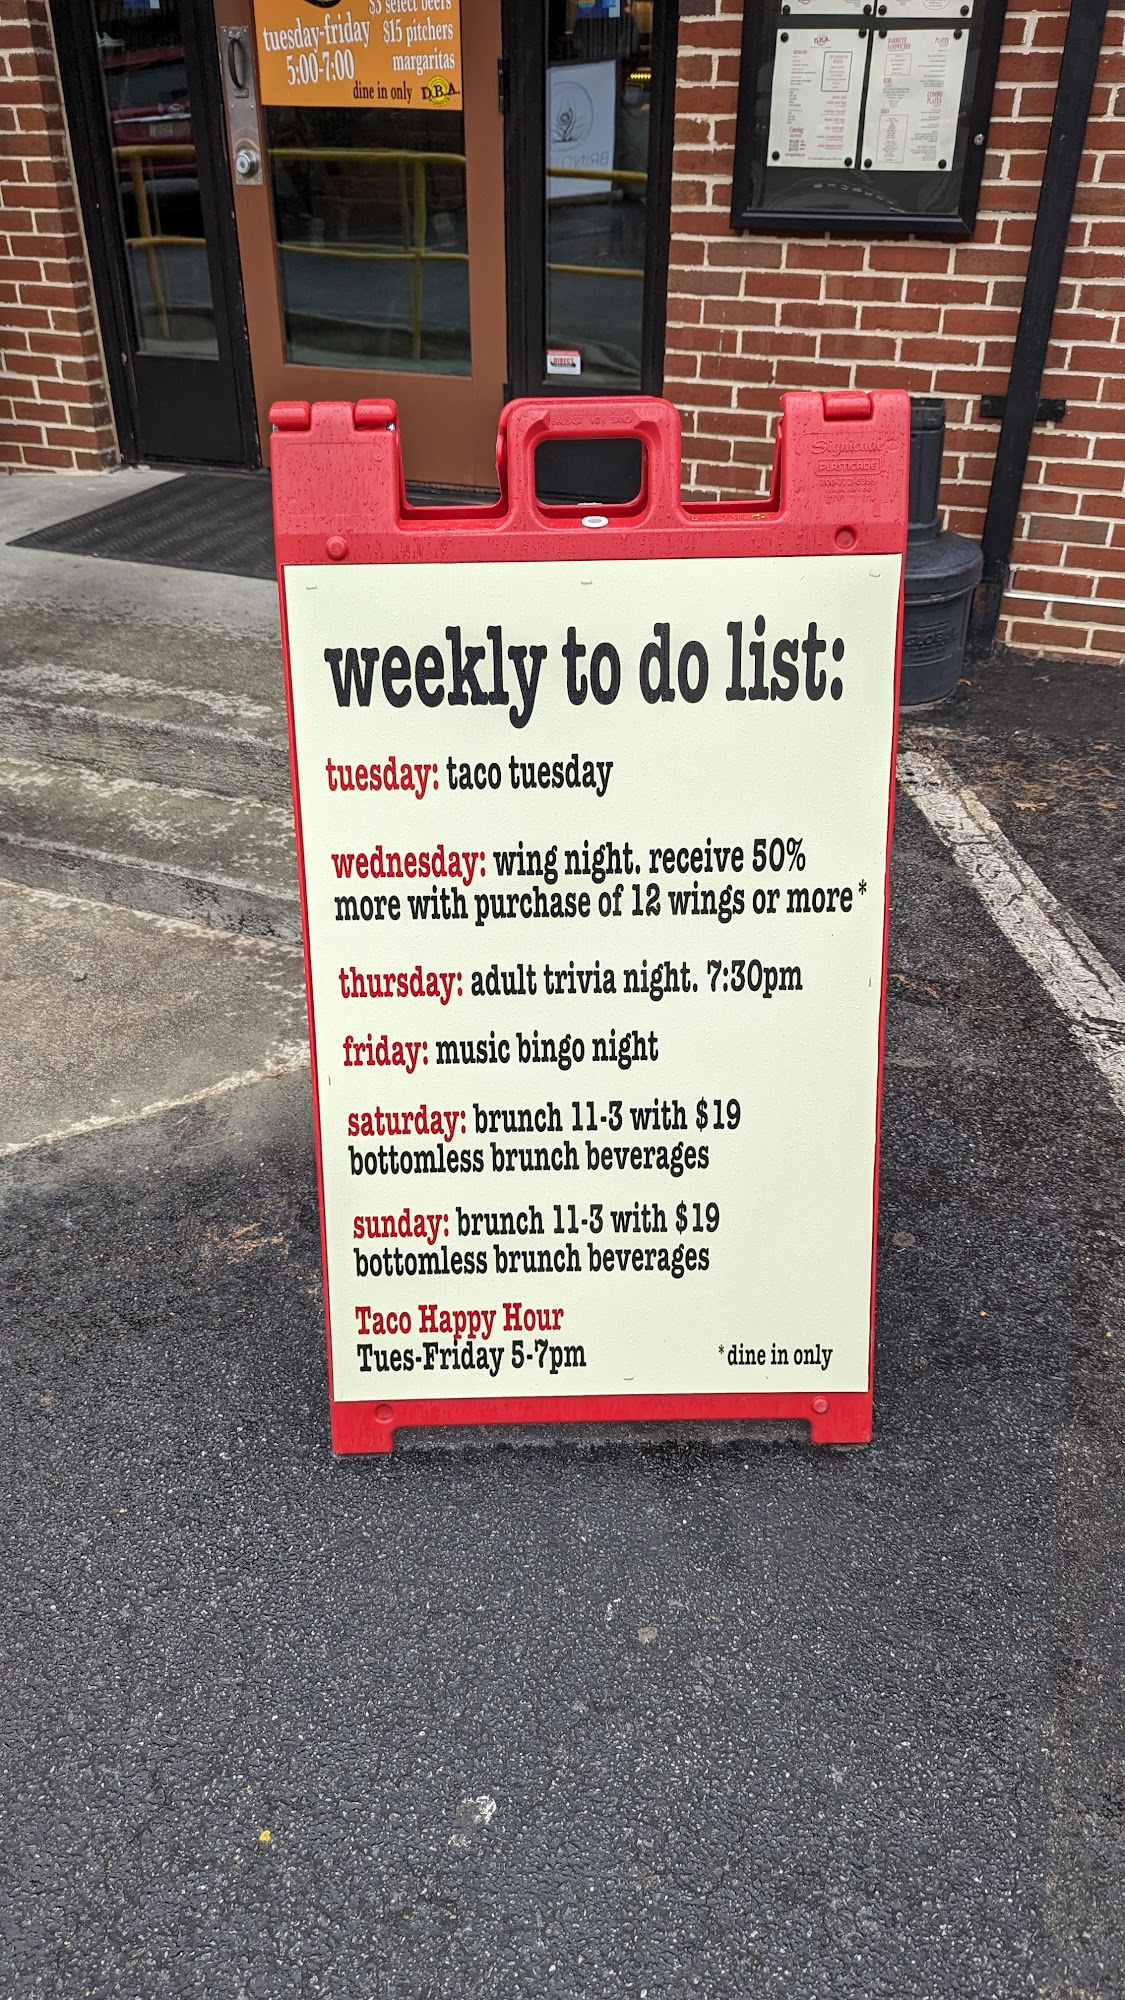 $3 select beers
tuesday-friday $15 pitchers
5:00-7:00 margaritas
dine in only D.B.A.
Signicade
PLASTICADE
weekly to do list:
tuesday: taco tuesday
wednesday: wing night. receive 50%
more with purchase of 12 wings or more*
thursday: adult trivia night. 7:30pm
friday: music bingo night
saturday: brunch 11-3 with $19
bottomless brunch beverages
sunday: brunch 11-3 with $19
bottomless brunch beverages
Taco Happy Hour
Tues-Friday 5-7pm
*dine in only